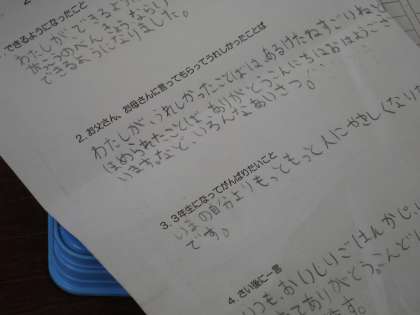 できるようになったこと
わたしができるよう
がっこうのべんきょうならい
できるようになりました。
2. お父さん、お母さんに言ってもらってうれしかったことば
わたしが、うれしかったことばは、あるけたねすごいねと
ほめられたことば、ありがとうこんにちはおはようござ
います。など、いろんなあいさつ。
3. 3年生になってがんばりたいこと
いまの自分よりもっともっと人にやさしくなりた
です。
4. さい後に一言
いつも、おいしいごはんかじ
てありがとう。
す。